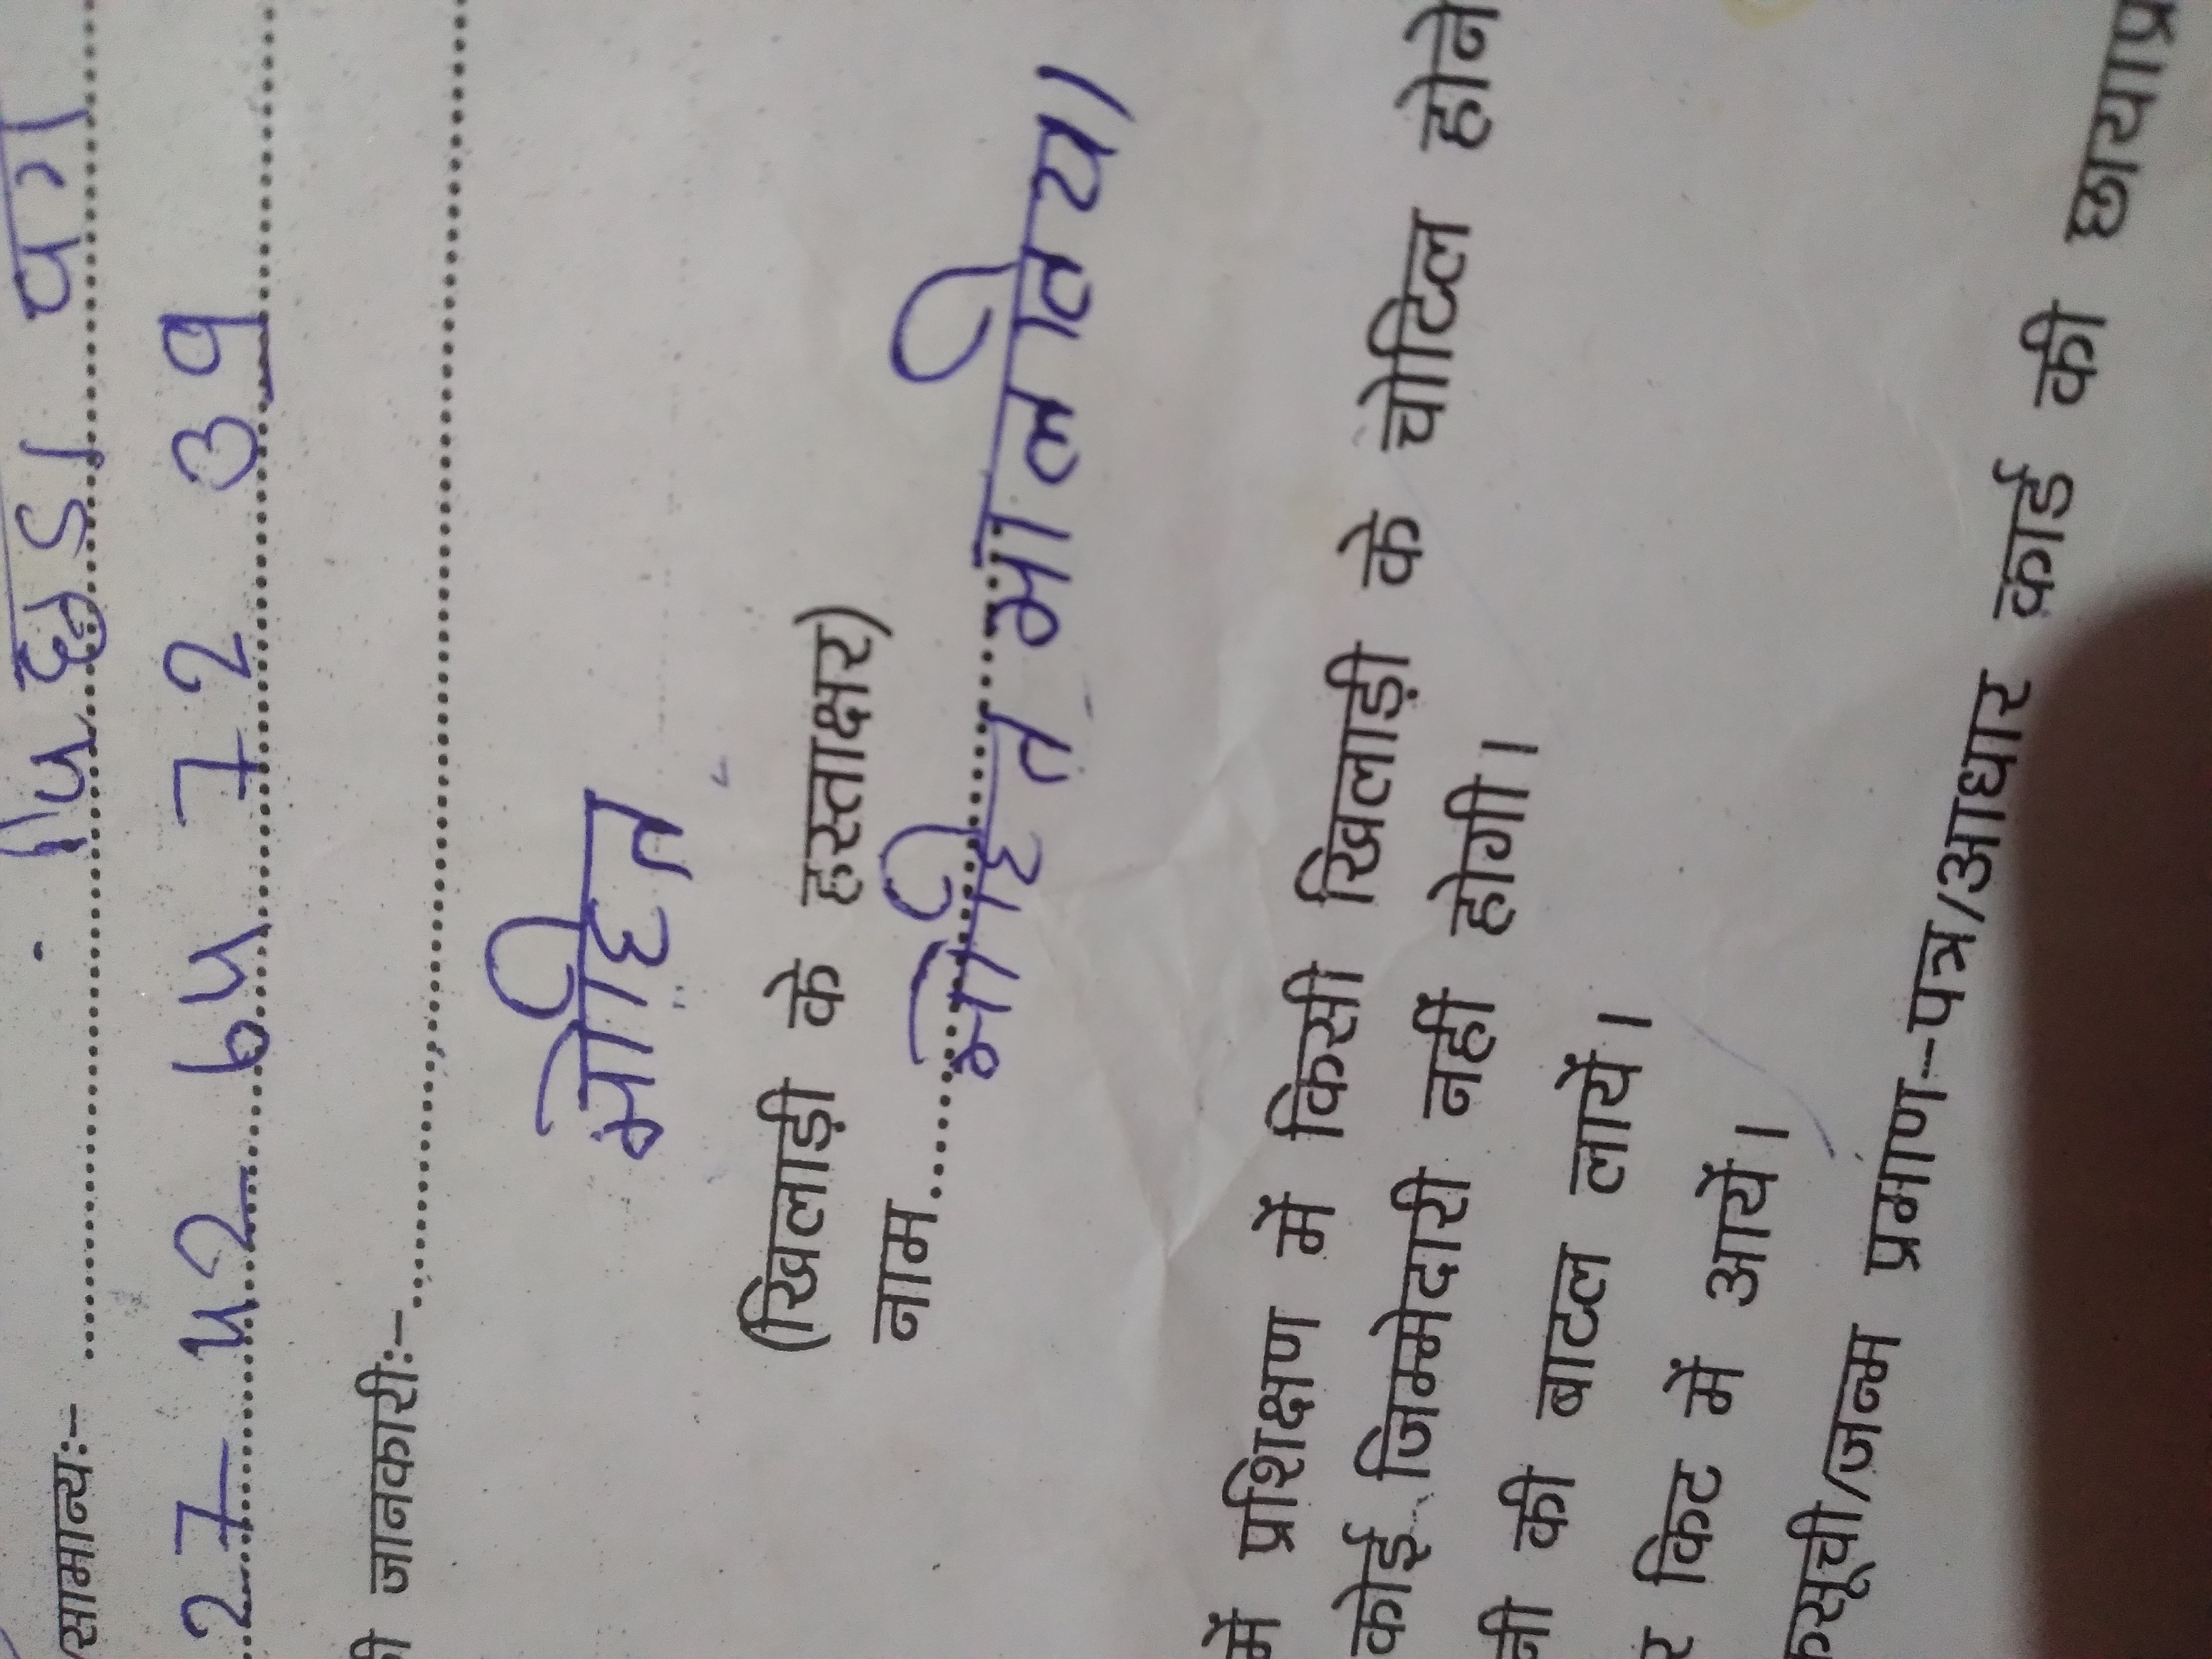 /सामान्य:- पिछडा वर्ग
27 72
जानकारी:-
मोहित
(खिलाड़ी के हस्ताक्षर)
नाम मोहित
में प्रशिक्षण में किसी खिलाड़ी के चोटिल होने
कोई जिम्मेदारी नहीं होगी।
की बाटल लायें।
किट में आयें।
/जन्म प्रमाण-पत्र/आधार कार्ड की छायाप्र